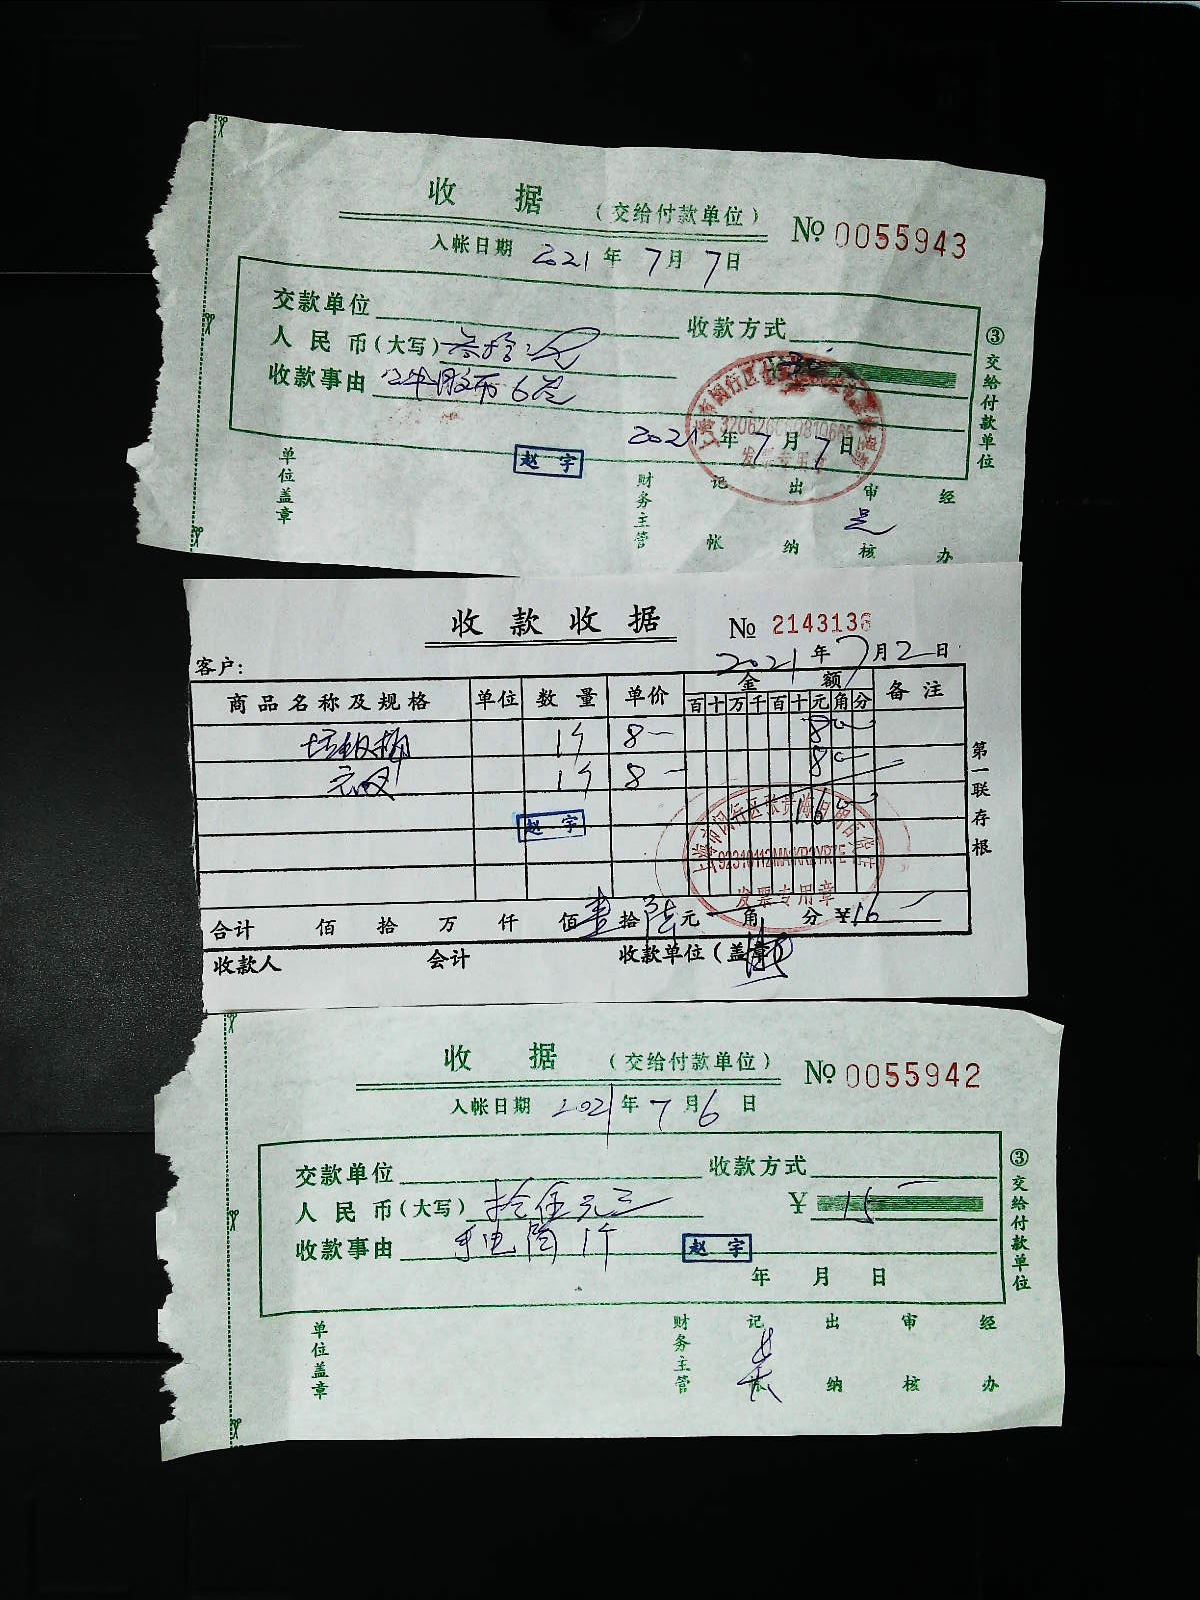 收 据 (交给付款单位) № 0055943
入帐日期 2021 年 7 月 7 日
交款单位 收款方式
人 民 币(大写) 叁拾元 30
收款事由 6卷
2021 年 7 月 7 日
赵 宇
单位盖章 财务主管 记帐 出纳 审核 经办
③交给付款单位
发票专用章
收 款 收 据 № 2143136
2021 年 7 月 2 日
客户:
商品名称及规格 单位 数 量 单价 金 额 备 注
百 十 万 千 百 十 元 角 分
垃圾桶 1个 8— 8 0
1个 8— 8 0
赵 宇 1 6 0
发票专用章
合计 佰 拾 万 仟 佰 壹 拾 陆 元 角 分 ¥16—
收款人 会计 收款单位(盖章)
第一联存根
收 据 (交给付款单位) № 0055942
入帐日期 2021 年 7 月 6 日
交款单位 收款方式
人 民 币(大写) 拾伍元正 ¥ 15
收款事由 手电筒 1个
赵 宇
年 月 日
单位盖章 财务主管 记帐 出纳 审核 经办
③交给付款单位